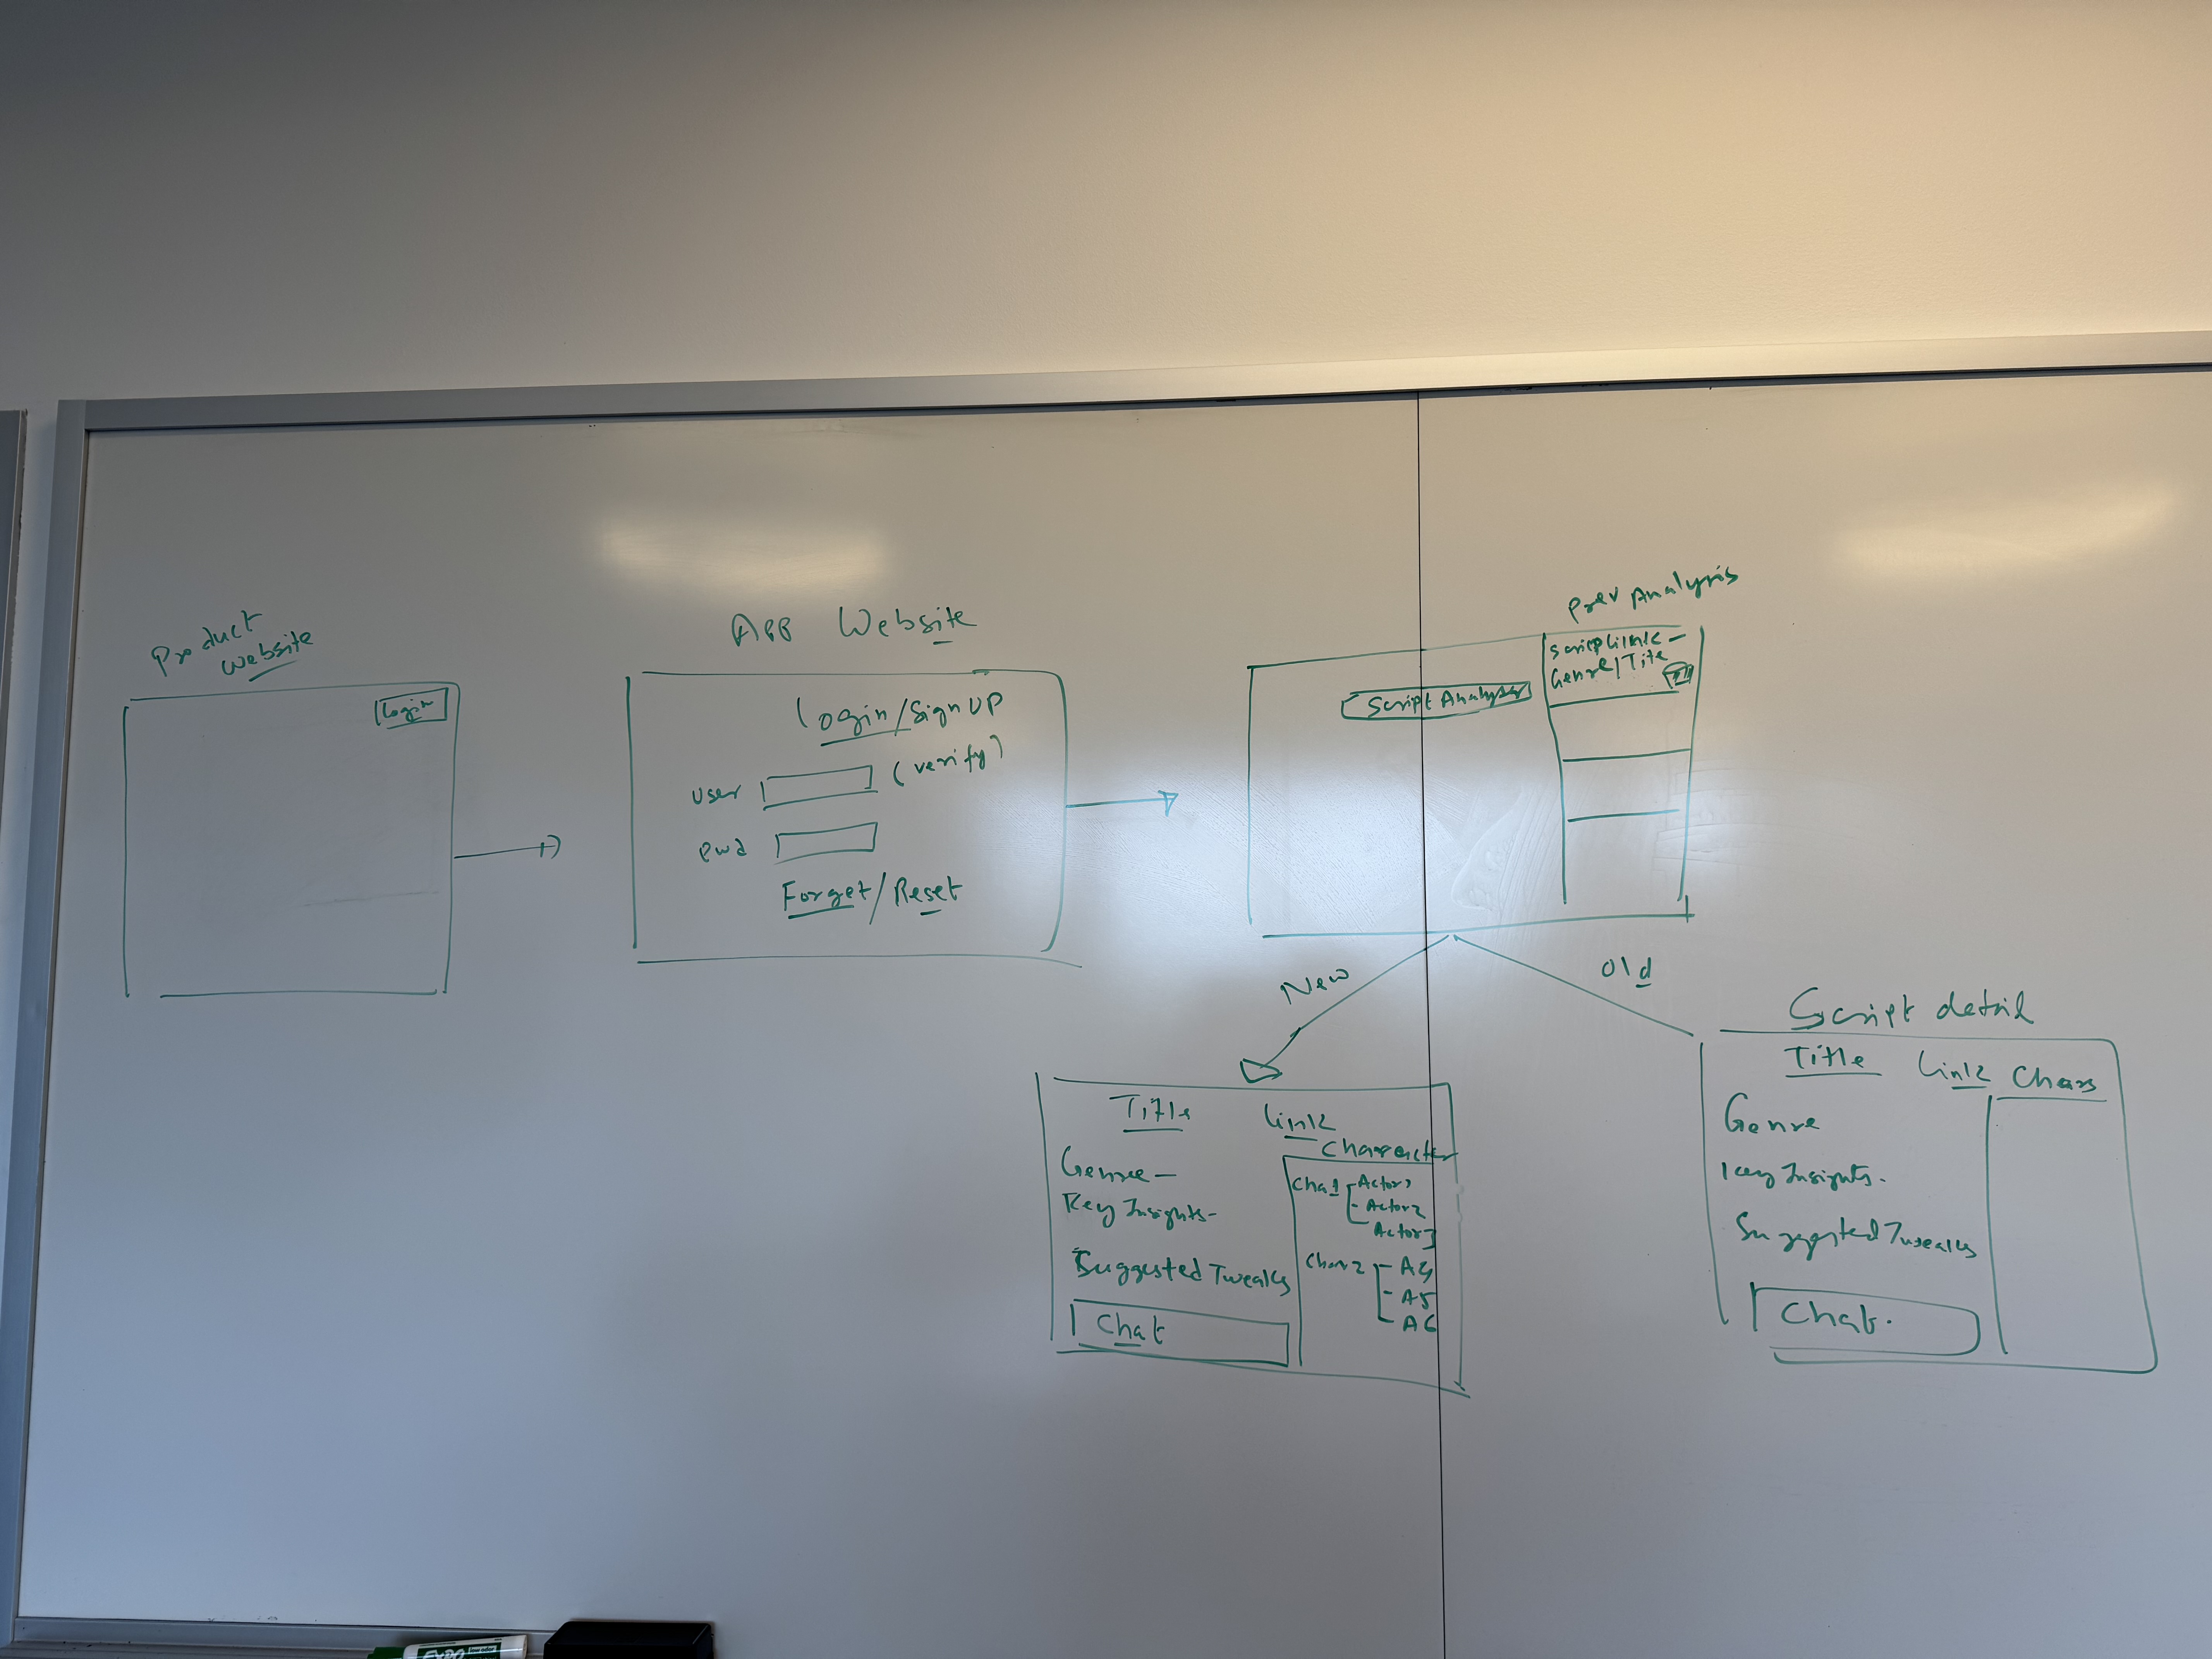 Product
Website
Login
App Website
Login/Sign UP
(verify)
user
pwd
Forget/Reset
Prev Analysis
Script Link -
Genre/Title
Script Analyser
New
Old
Title
Link
Character
Genre -
Key Insights -
Suggested Tweaks
Chat
Cha1
Actor1
- Actor2
Actor3
Char2
- A4
- A5
- A6
Script detail
Title Link Chars
Genre
Key Insights.
Suggested Tweaks
Chat.
EXPO